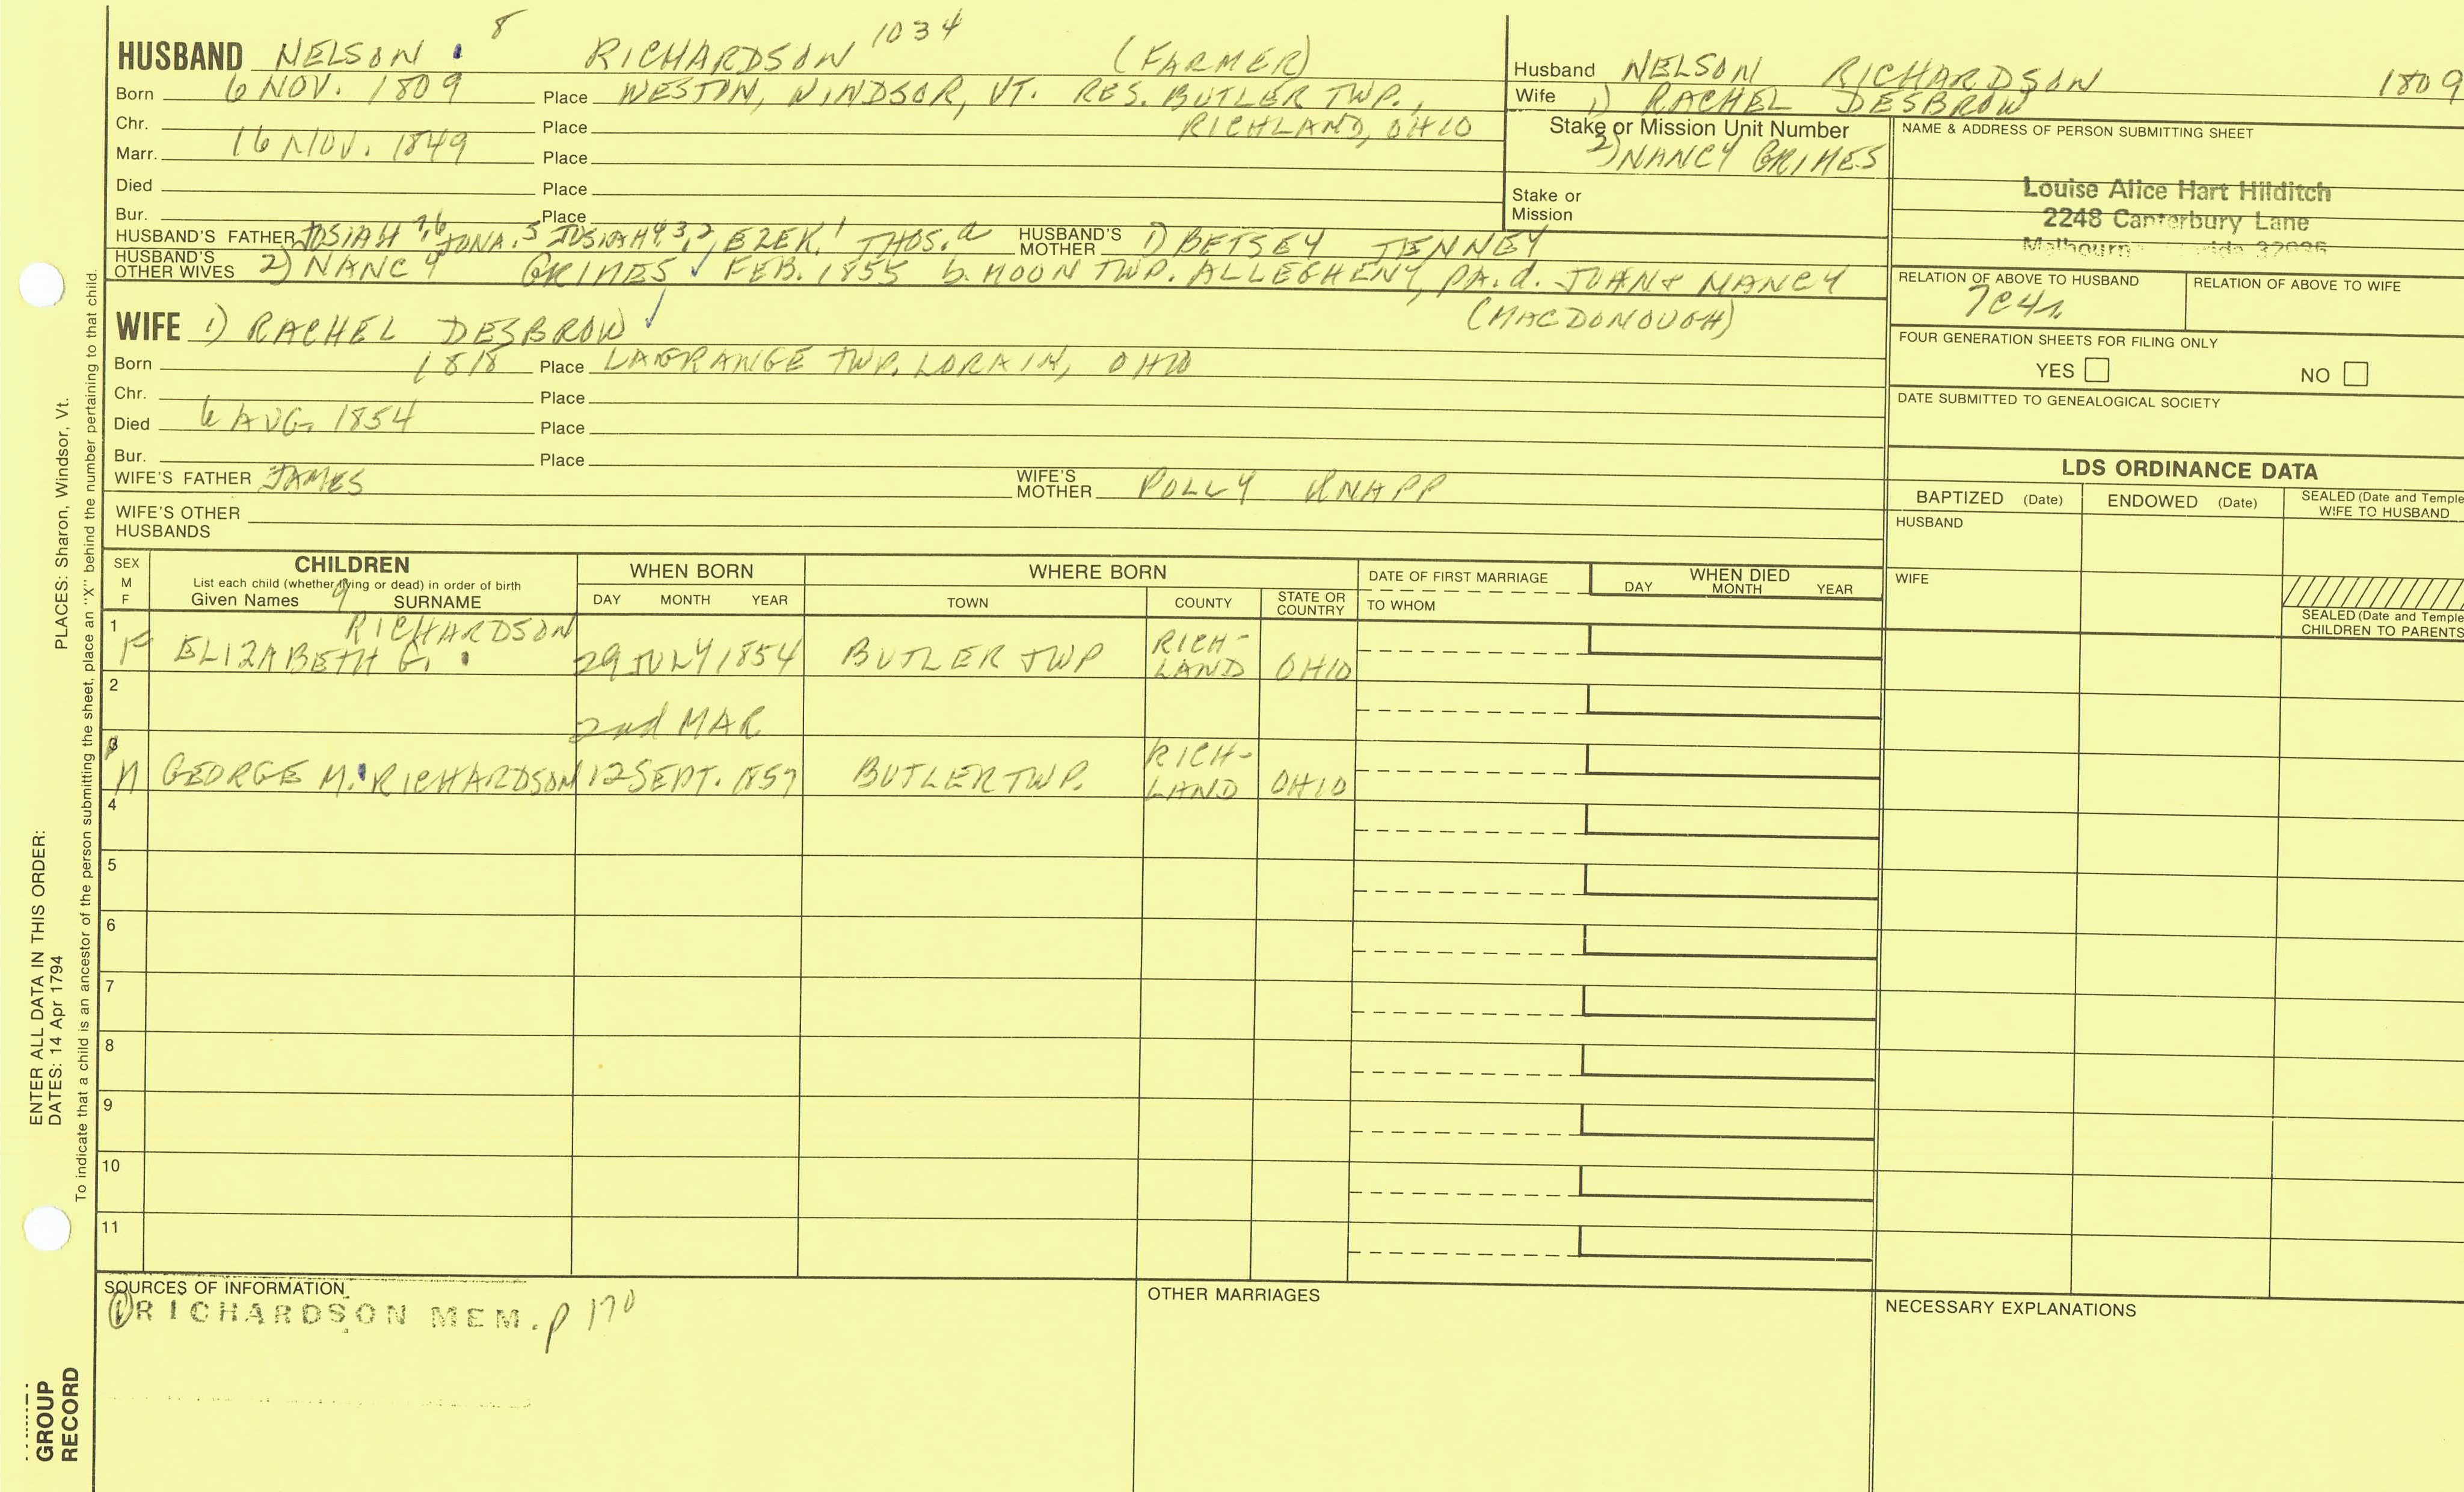 8
HUSBAND NELSON RICHARDSON 1034 (FARMER)
Born 6 NOV. 1809 Place WESTON, WINDSOR, VT. RES. BUTLER TWP.,
Chr. Place RICHLAND, OHIO
Marr. 16 NOV. 1849 Place
Died Place
Bur. Place
HUSBAND'S FATHER JOSIAH 7,6 JONA. 5 JOSIAH 4 3,2, EZEK. 1 THOS. a HUSBAND'S MOTHER 1) BETSEY TENNEY
HUSBAND'S OTHER WIVES 2) NANCY GRIMES ✓ FEB. 1855 b. MOON TWP. ALLEGHENY, PA. d. JOHN & NANCY
(MACDONOUGH)
WIFE 1) RACHEL DESBROW ✓
Born 1818 Place LAGRANGE TWP. LORAIN, OHIO
Chr. Place
Died 6 AUG. 1854 Place
Bur. Place
WIFE'S FATHER JAMES WIFE'S MOTHER POLLY KNAPP
WIFE'S OTHER HUSBANDS
Husband NELSON RICHARDSON 1809
Wife 1) RACHEL DESBROW
Stake or Mission Unit Number
2) NANCY GRIMES
Stake or Mission
NAME & ADDRESS OF PERSON SUBMITTING SHEET
Louise Alice Hart Hilditch
2248 Canterbury Lane
RELATION OF ABOVE TO HUSBAND
7C4r.
RELATION OF ABOVE TO WIFE
FOUR GENERATION SHEETS FOR FILING ONLY
YES NO
DATE SUBMITTED TO GENEALOGICAL SOCIETY
LDS ORDINANCE DATA
BAPTIZED (Date) ENDOWED (Date) SEALED (Date and Temple
WIFE TO HUSBAND
HUSBAND
WIFE
SEALED (Date and Temple
CHILDREN TO PARENTS
SEX M F
CHILDREN
List each child (whether living or dead) in order of birth
Given Names 9 SURNAME
WHEN BORN
DAY MONTH YEAR
WHERE BORN
TOWN COUNTY STATE OR COUNTRY
DATE OF FIRST MARRIAGE
TO WHOM
WHEN DIED
DAY MONTH YEAR
1 F ELIZABETH G. RICHARDSON 29 JULY 1854 BUTLER TWP RICH-LAND OHIO
2
2nd MAR
3 M GEORGE M. RICHARDSON 12 SEPT. 1857 BUTLER TWP. RICH-LAND OHIO
4
5
6
7
8
9
10
11
SOURCES OF INFORMATION
① RICHARDSON MEM. p 170
OTHER MARRIAGES
NECESSARY EXPLANATIONS
PLACES: Sharon, Windsor, Vt.
To indicate that a child is an ancestor of the person submitting the sheet, place an "X" behind the number pertaining to that child.
ENTER ALL DATA IN THIS ORDER:
DATES: 14 Apr 1794
GROUP
RECORD